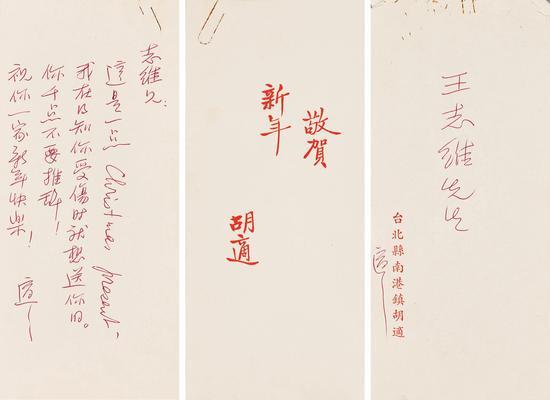 志維兄：
這是一点 Christmas present，
我在得知你受傷时就想送你的。
你千万不要推辞！
祝你一家新年快樂！
適
敬賀
新年
胡適
王志維先生
台北縣南港鎮胡適
適